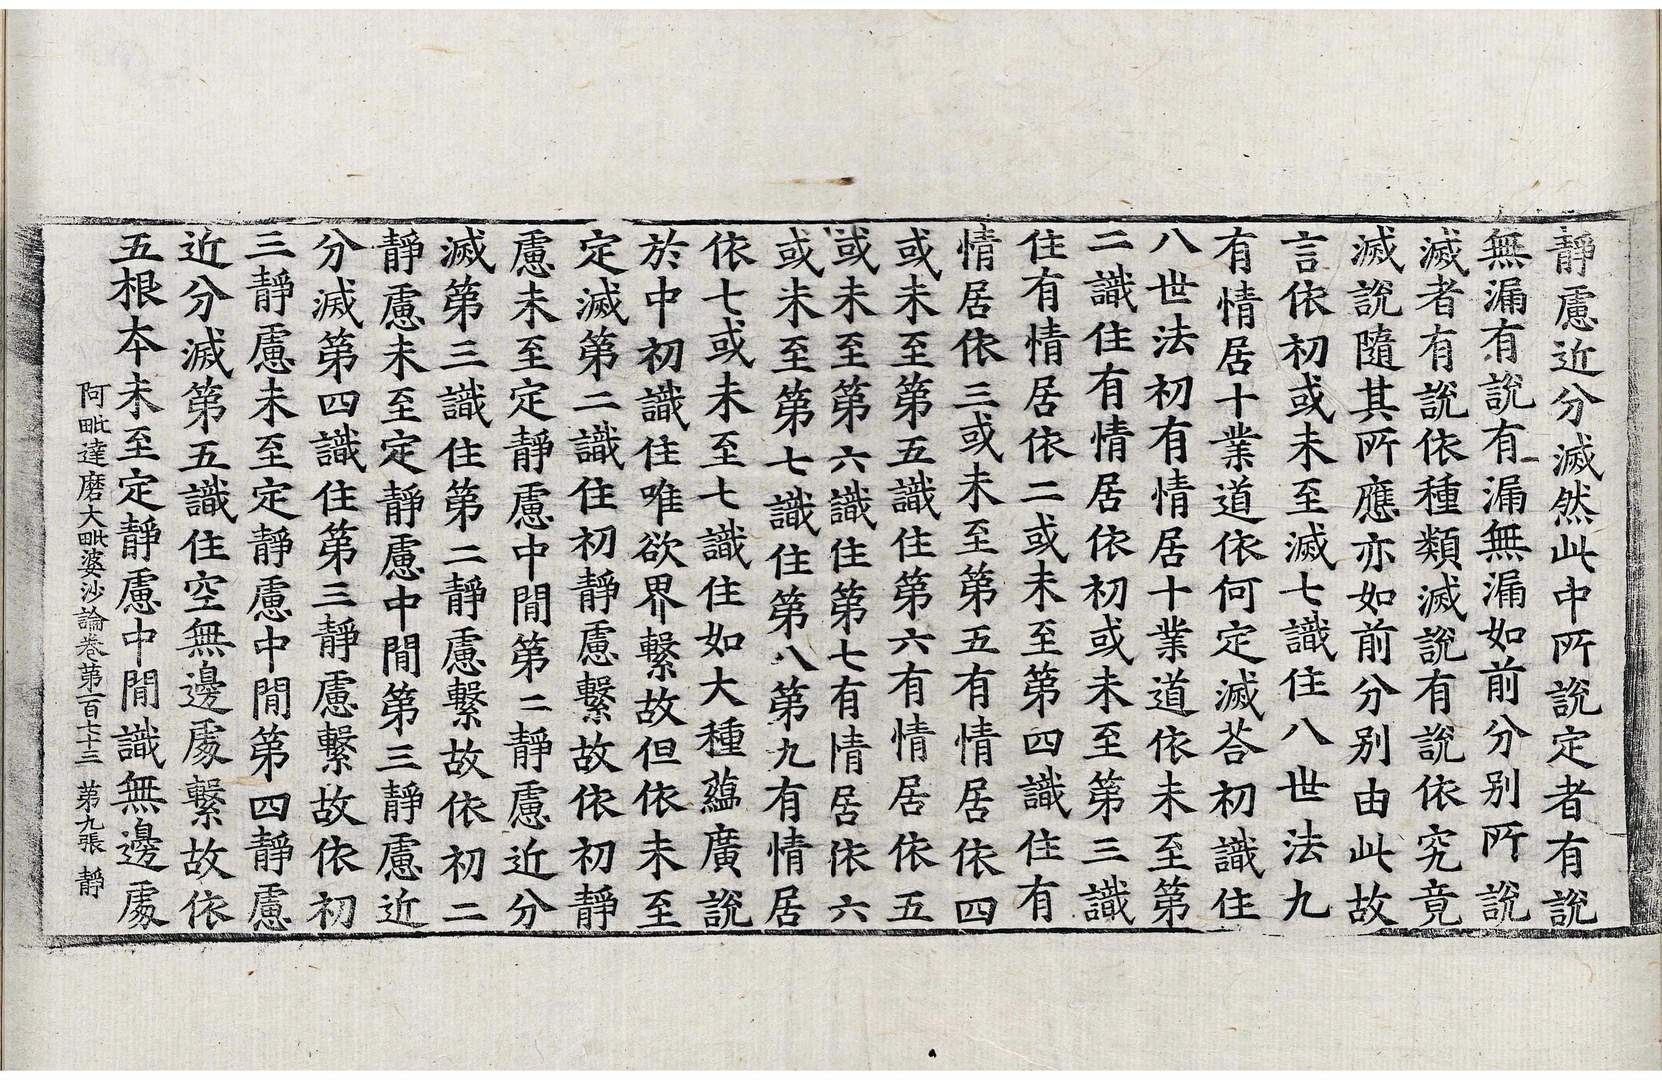 靜慮近分滅然此中所說定者有說
無漏有說有漏無漏如前分別所說
滅者有說依種類滅說有說依究竟
滅說隨其所應亦如前分別由此故
言依初或未至滅七識住八世法九
有情居十業道依何定滅荅初識住
八世法初有情居十業道依未至第
二識住有情居依初或未至第三識
住有情居依二或未至第四識住有
情居依三或未至第五有情居依四
或未至第五識住第六有情居依五
或未至第六識住第七有情居依六
或未至第七識住第八第九有情居
依七或未至七識住如大種蘊廣說
於中初識住唯欲界繫故但依未至
定滅第二識住初靜慮繫故依初靜
慮未至定靜慮中閒第二靜慮近分
滅第三識住第二靜慮繫故依初二
靜慮未至定靜慮中閒第三靜慮近
分滅第四識住第三靜慮繫故依初
三靜慮未至定靜慮中閒第四靜慮
近分滅第五識住空無邊處繫故依
五根本未至定靜慮中閒識無邊處
阿毗達磨大毗婆沙論卷第一百七十三 第九張 靜